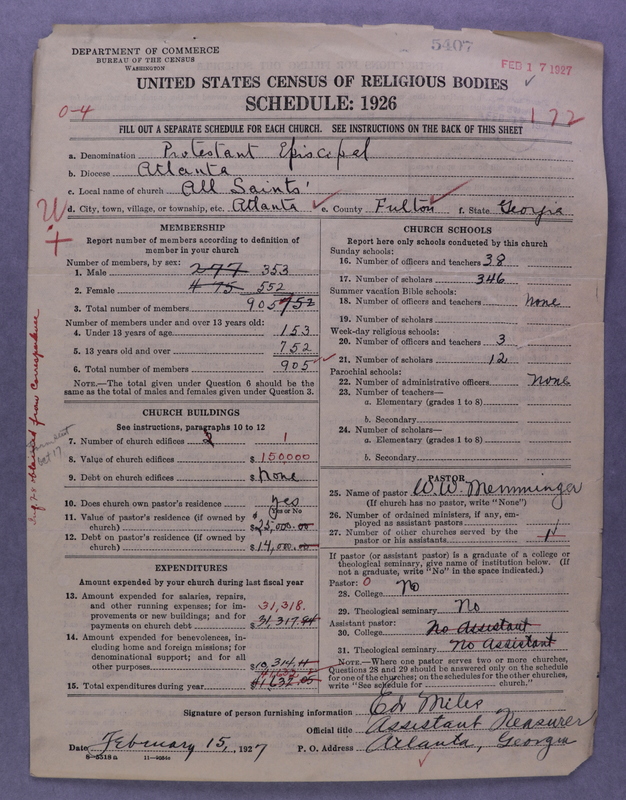 DEPARTMENT OF COMMERCE
BUREAU OF THE CENSUS
WASHINGTON
5407
FEB 17 1927
UNITED STATES CENSUS OF RELIGIOUS BODIES
SCHEDULE: 1926
0-4
172
FILL OUT A SEPARATE SCHEDULE FOR EACH CHURCH. SEE INSTRUCTIONS ON THE BACK OF THIS SHEET
a. Denomination Protestant Episcopal
b. Diocese Atlanta
c. Local name of church All Saints'
d. City, town, village, or township, etc. Atlanta e. County Fulton f. State Georgia
MEMBERSHIP
Report number of members according to definition of
member in your church
Number of members, by sex:
1. Male 277 353
2. Female 475 552
3. Total number of members 905 752
Number of members under and over 13 years old:
4. Under 13 years of age 153
5. 13 years old and over 752
6. Total number of members 905
NOTE.—The total given under Question 6 should be the
same as the total of males and females given under Question 3.
CHURCH BUILDINGS
See instructions, paragraphs 10 to 12
7. Number of church edifices 2 1
8. Value of church edifices $ 150000
9. Debt on church edifices $ None
10. Does church own pastor's residence? yes
(Yes or No
11. Value of pastor's residence (if owned by
church) $25,000.00
12. Debt on pastor's residence (if owned by
church) $14,000.00
EXPENDITURES
Amount expended by your church during last fiscal year
13. Amount expended for salaries, repairs,
and other running expenses; for im-
provements or new buildings; and for
payments on church debt 31,318. $31,317.94
14. Amount expended for benevolences, in-
cluding home and foreign missions; for
denominational support; and for all
other purposes $10,314.11
15. Total expenditures during year $41,632.05
CHURCH SCHOOLS
Report here only schools conducted by this church
Sunday schools:
16. Number of officers and teachers 38
17. Number of scholars 346
Summer vacation Bible schools:
18. Number of officers and teachers None
19. Number of scholars
Week-day religious schools:
20. Number of officers and teachers 3
21. Number of scholars 12
Parochial schools:
22. Number of administrative officers None
23. Number of teachers—
a. Elementary (grades 1 to 8)
b. Secondary
24. Number of scholars—
a. Elementary (grades 1 to 8)
b. Secondary
PASTOR
25. Name of pastor W. W. Memminger
(If church has no pastor, write "None")
26. Number of ordained ministers, if any, em-
ployed as assistant pastors
27. Number of other churches served by the
pastor or his assistants 1
If pastor (or assistant pastor) is a graduate of a college or
theological seminary, give name of institution below. (If
not a graduate, write "No" in the space indicated.)
Pastor: 0
28. College No
29. Theological seminary No
Assistant pastor:
30. College No Assistant
31. Theological seminary No Assistant
NOTE.—Where one pastor serves two or more churches,
Questions 28 and 29 should be answered only on the schedule
for one of the churches; on the schedules for the other churches,
write "See schedule for church."
Signature of person furnishing information Ed. Miles
Official title Assistant Treasurer
Date February 15, 1927 P. O. Address Atlanta, Georgia
8-5318a 11-9264